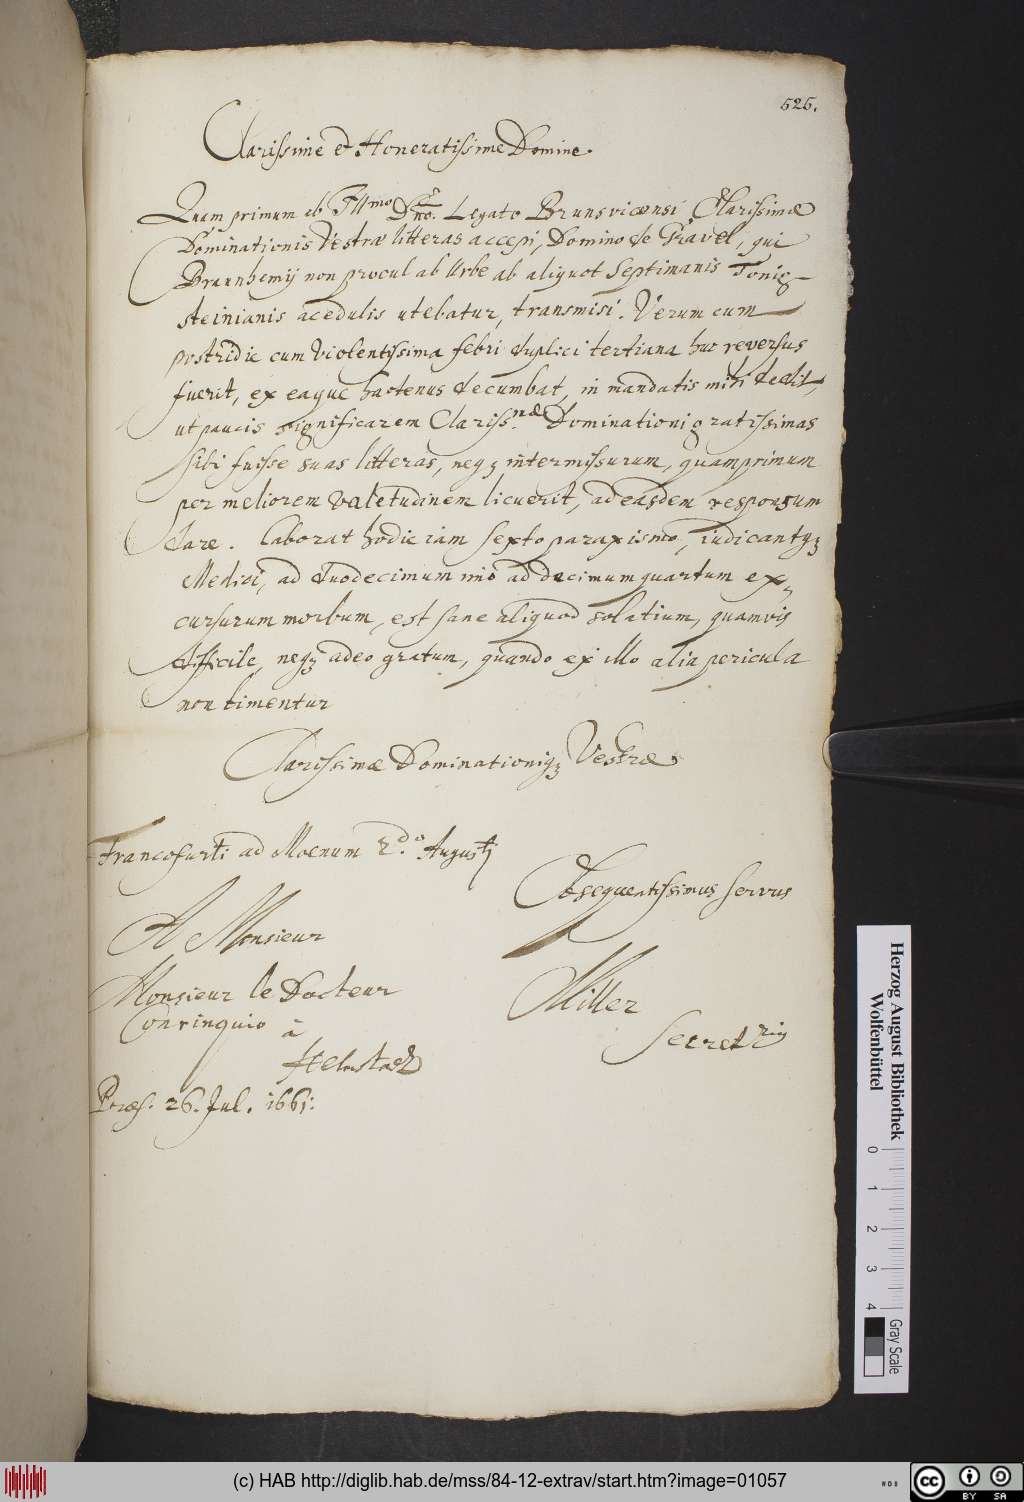 525.
Clarissime et Honoratissime Domine.
Quam primum ab Illmo Dno. Legato Brunsvicensi Clarissimæ
Dominationis Vestræ litteras accepi, Domino de Gravel, qui
Brunnhemij non procul ab Urbe ab aliquot septimanis Tonig-
steinianis acedulis utebatur, transmisi. Verum cum
postridie cum violentissima febri duplici tertiana huc reversus
fuerit, ex eaque hactenus decumbat, in mandatis mihi dedit,
ut paucis significarem Clariss.mæ Dominationi gratissimas
sibi fuisse suas litteras, neqꝫ intermissurum, quamprimum
per meliorem valetudinem licuerit, ad easdem responsum
dare. Laborat hodie iam sexto paraxismo, iudicantqꝫ
Medici, ad duodecimum imo ad decimum quartum ex-
cursurum morbum, est sane aliquod solatium, quamvis
difficile, neqꝫ adeo gratum, quando ex illo alia pericula
non timentur
Clarissimæ Dominationiqꝫ Vestræ
Francofurti ad Moenum 2.do Augusti
Obsequentissimus servus
A Monsieur
Monsieur le Docteur
Miller
Conringuio à
Secret.rius
Helmstadt
Præs. 26. Jul. 1661.
Herzog August Bibliothek
Wolfenbüttel
0 1 2 3 4
Gray Scale
(c) HAB http://diglib.hab.de/mss/84-12-extrav/start.htm?image=01057
cc BY SA